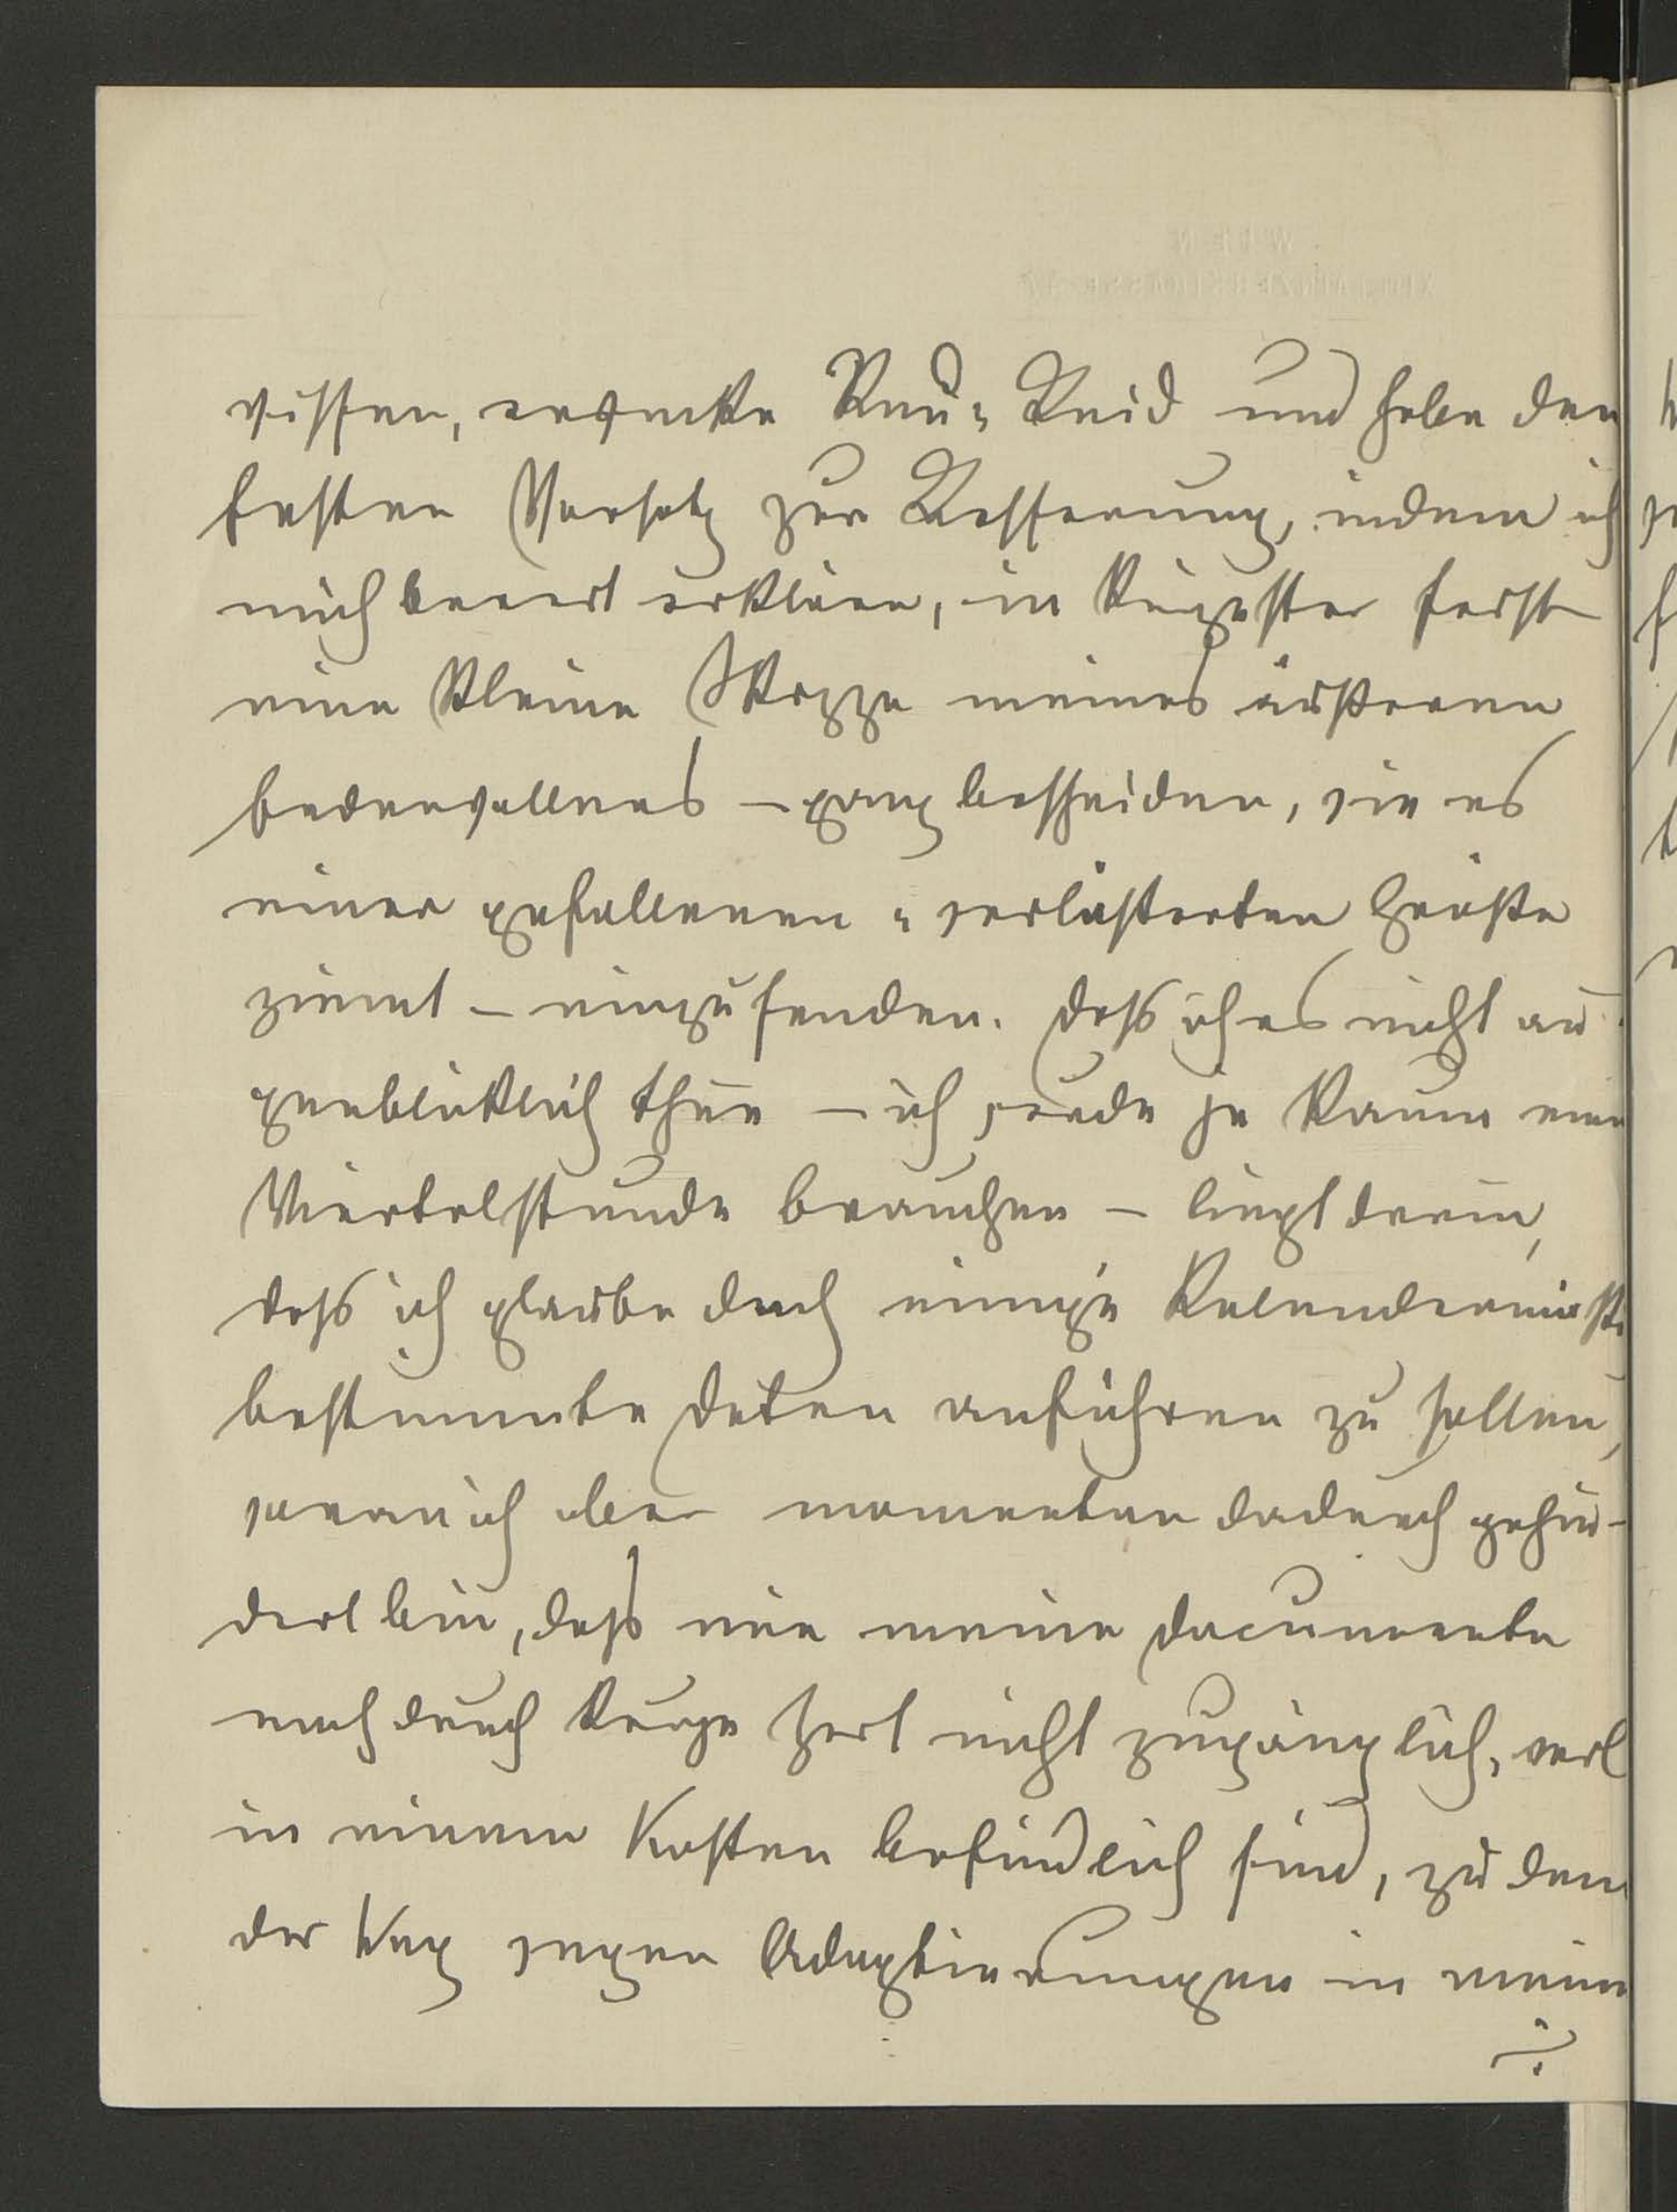 wissen, erwecke Reu u Leid und habe den
festen Vorsatz zur Besserung, indem ich
mich bereit erkläre, in kürzester Frist
eine kleine Skizze meines äußeren
Erdenwallens – ganz bescheiden, wie es
einer gefallenen u verlästerten Größe
ziemt – einzusenden. Daß ich es nicht au-
genblicklich thue – ich werde ja kaum eine
Viertelstunde brauchen – liegt darin,
daß ich glaube doch einige
bestimmte Daten anführen zu sollen,
woran ich aber momentan dadurch gehin-
dert bin, daß mir meine Documente
noch durch kurze Zeit nicht zugänglich, weil
in einem Kasten befindlich sind, zu dem
der Weg wegen Adaptierungen in meiner
./.